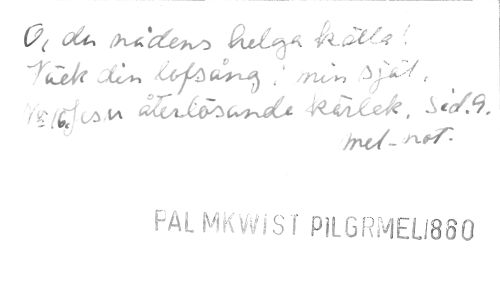 O, du nådens helga källa!
Väck din lofsång i min själ.
No 16. Jesu återlösande kärlek. Sid. 9.
mel-not.
PALMKWIST PILGRMEL1860